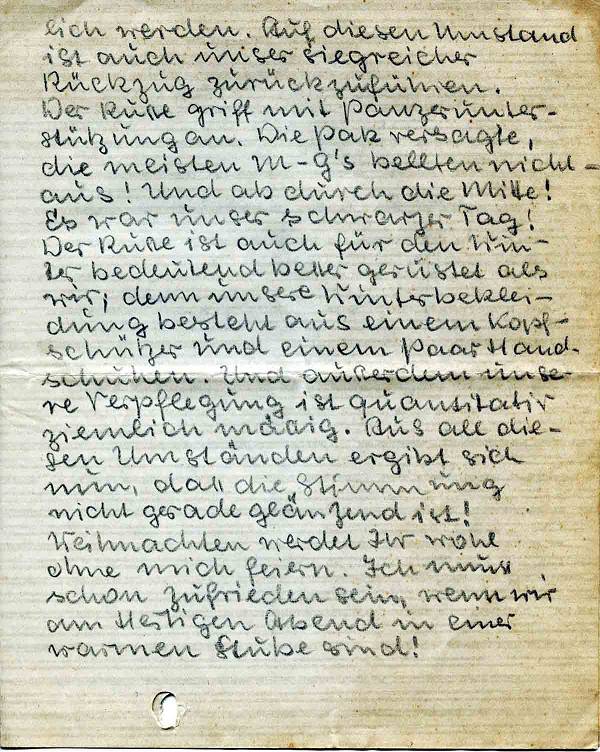 lich werden. Auf diesen Umstand
ist auch unser siegreicher
Rückzug zurückzuführen.
Der Ruße griff mit Panzerunter-
stützung an. Die Pak versagte,
die meisten M-G's bellten nicht
aus! Und ab durch die Mitte!
Es war unser schwarzer Tag!
Der Ruße ist auch für den Win-
ter bedeutend beßer gerüstet als
wir; denn unsere Winterbeklei-
dung besteht aus einem Kopf-
schützer und einem Paar Hand-
schuhen. Und außerdem unse-
re Verpflegung ist quantitativ
ziemlich mäßig. Aus all die-
sen Umständen ergibt sich
nun, daß die Stimmung
nicht gerade glänzend ist!
Weihnachten werdet Ihr wohl
ohne mich feiern. Ich muß
schon zufrieden sein, wenn wir
am Heiligen Abend in einer
warmen Stube sind!